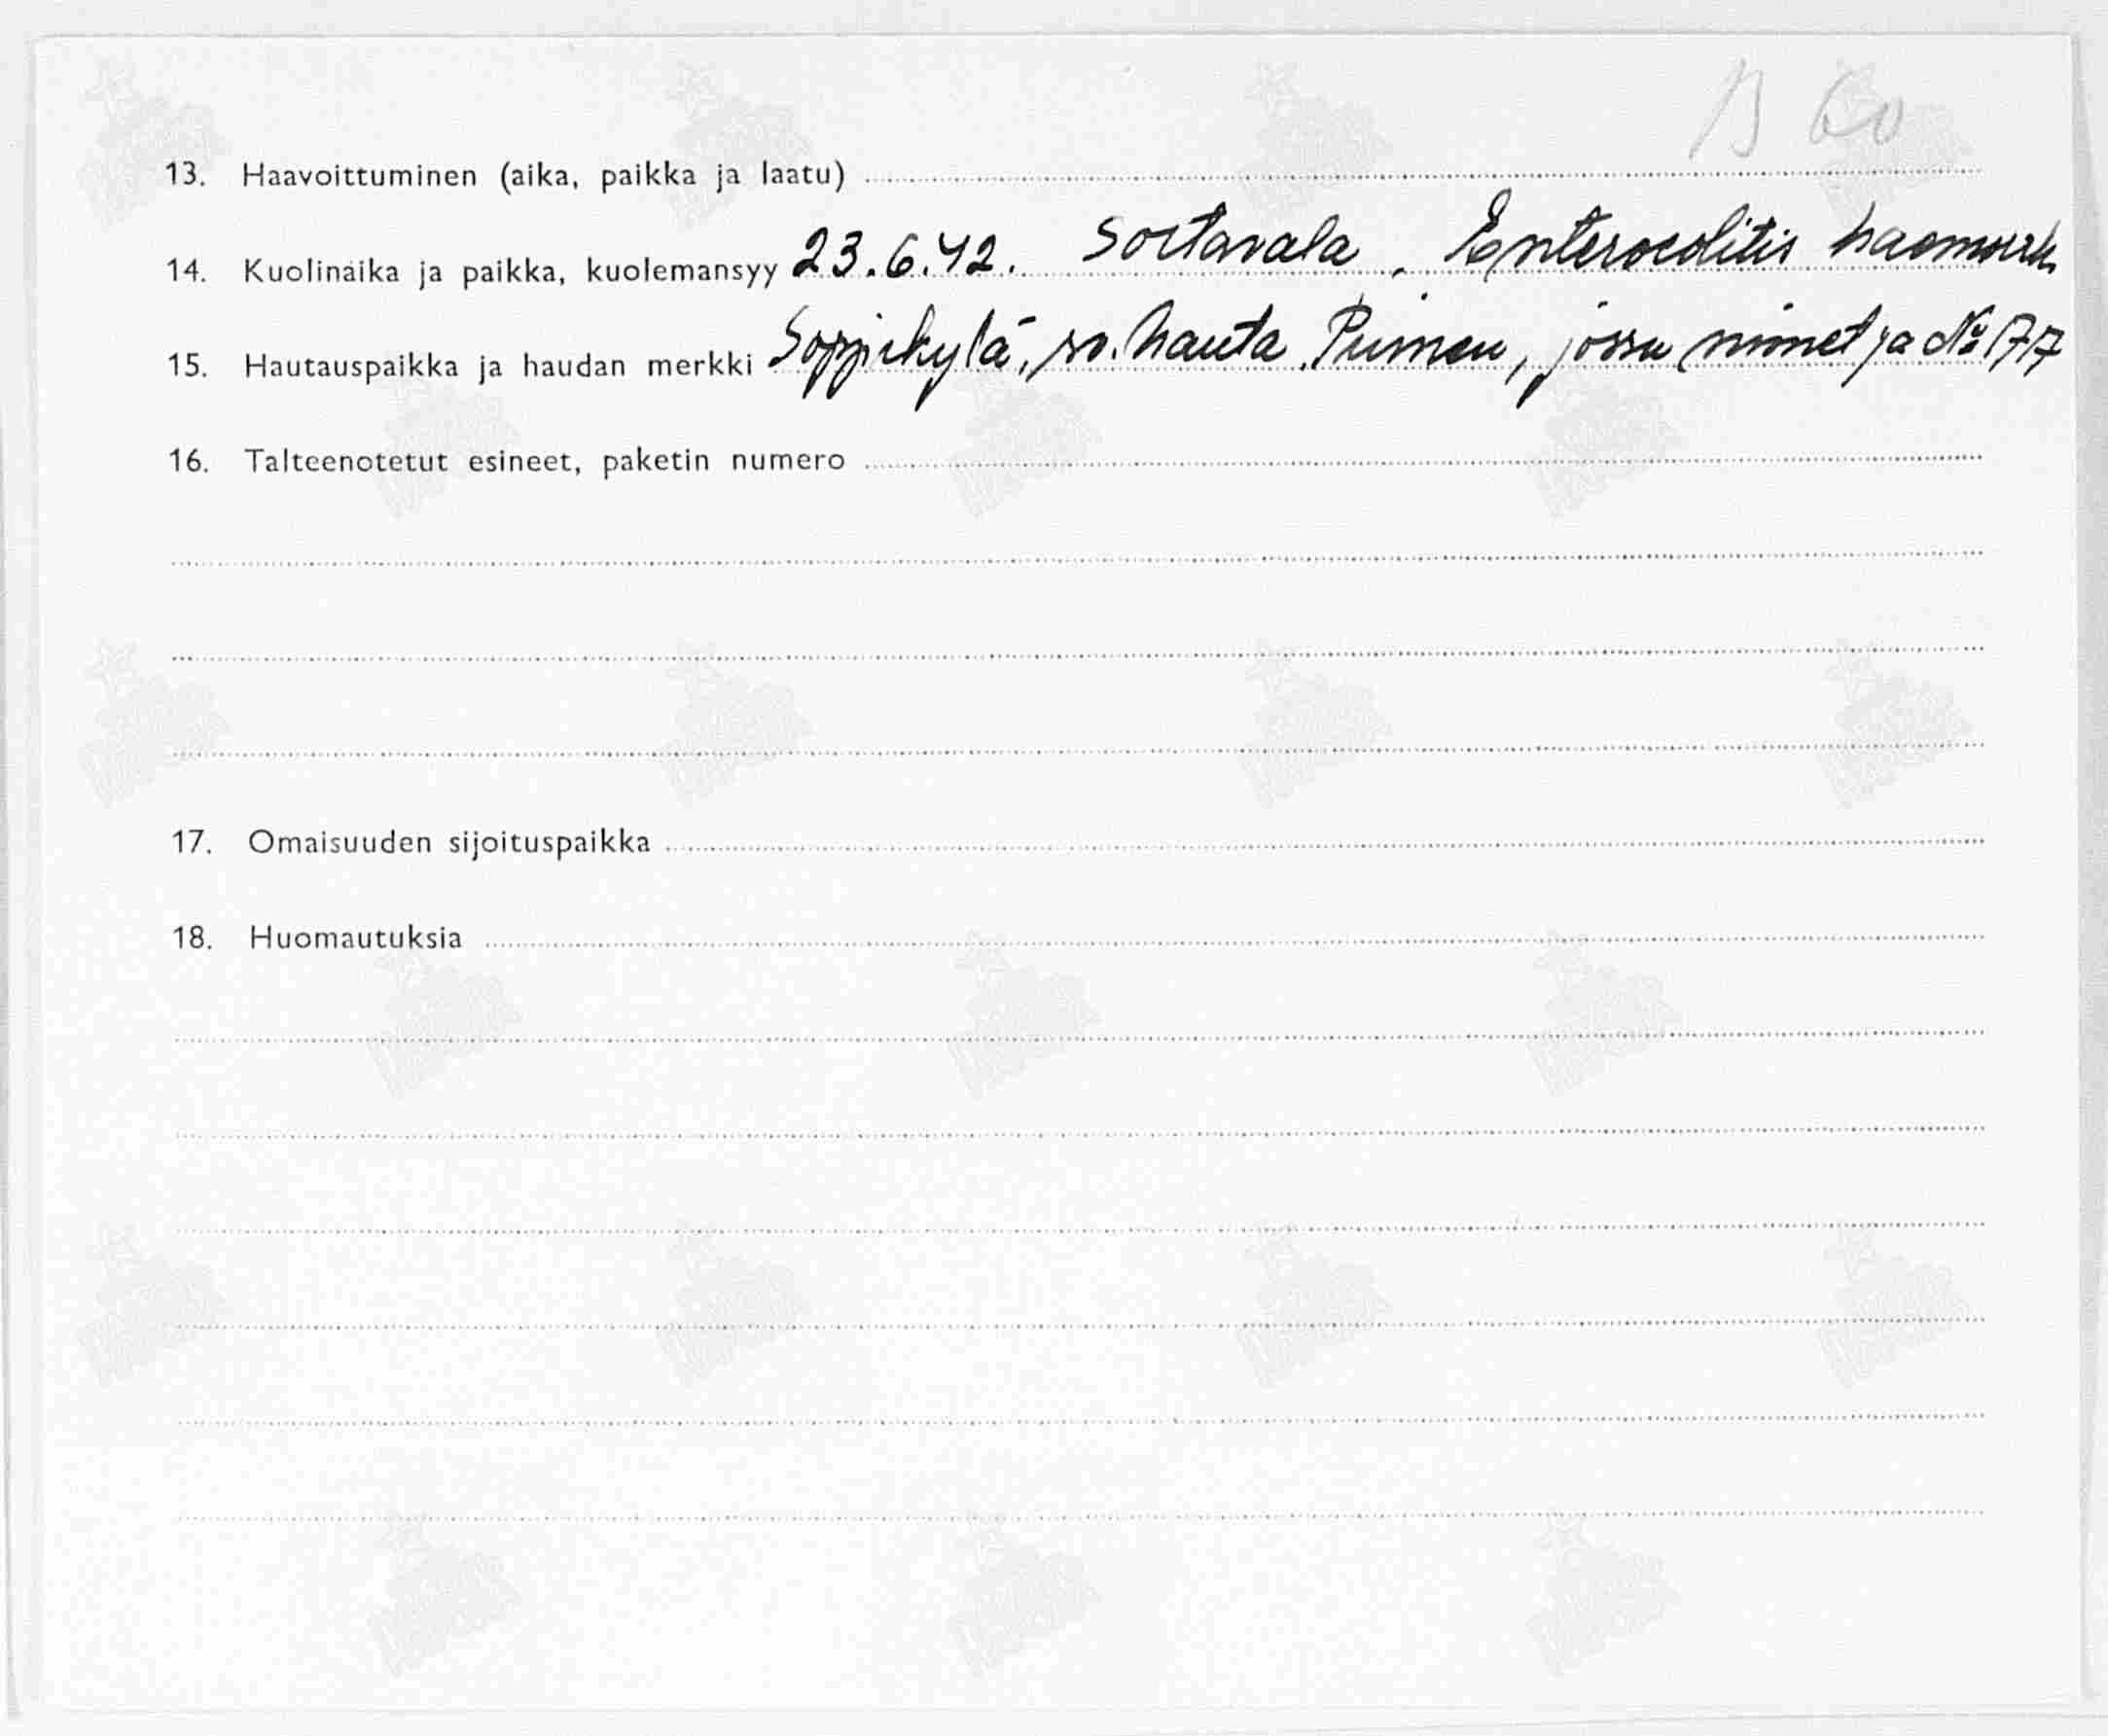 B 60
13. Haavoittuminen (aika, paikka ja laatu)
14. Kuolinaika ja paikka, kuolemansyy 23.6.42. Sortavala. Enterocolitis haemorrh.
15. Hautauspaikka ja haudan merkki Soppikylä, so. hauta. Puinen, jossa nimet ja No 177
16. Talteenotetut esineet, paketin numero
17. Omaisuuden sijoituspaikka
18. Huomautuksia